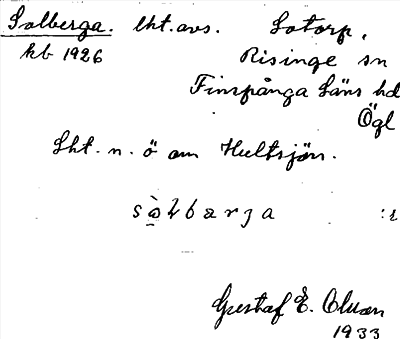 Solberga. lht.avs. Sotorp,
kb 1926 Risinge sn
Finspånga läns hd
Ögl
Lht. n. ö om Hultsjön.
Gustaf E. Olsson
1933